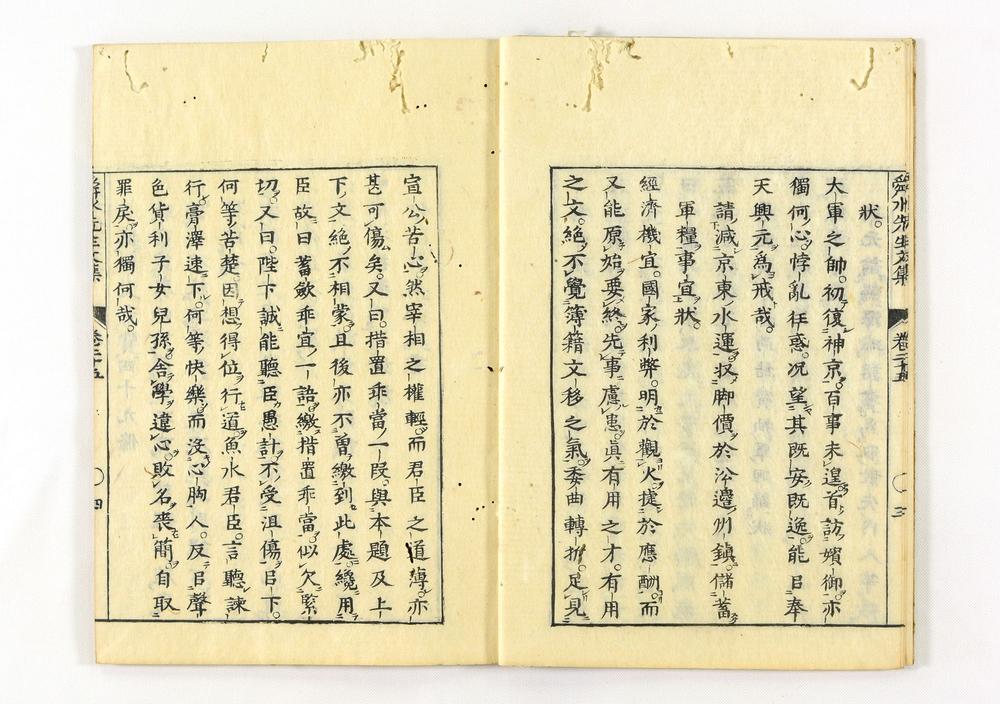 舜水先生文集 卷二十五 三
狀。
大軍之帥。初復神京。百事未遑。首訪嬪御。亦
獨何心。悖亂狂惑。況望其既安既逸。能㠯奉
天興元爲戒哉。
請減京東水運收脚價於沿邊州鎮。儲蓄
軍糧事宜狀。
經濟機宜。國家利弊。明於觀火。捷於應酬。而
又能原始要終。先事慮患。眞有用之才。有用
之文。絶不覺簿籍文移之氣。委曲轉折。足見
宣公苦心。然宰相之權輕。而君臣之道薄。亦
甚可傷矣。又曰。措置乖當一段。與本題及上
下文絶不相蒙。且後亦不曾繳到此處。纔用
臣故曰蓄斂乖宜一語。繳措置乖當。似欠緊
切。又曰。陛下誠能聽臣愚計。不受沮傷㠯下。
何等苦楚。因想得位行道。魚水君臣。言聽諫
行。膏澤速下。何等快樂。而沒心胸人。反㠯聲
色貨利子女兒孫。舍學違心。敗名喪簡。自取
罪戾。亦獨何哉。
四